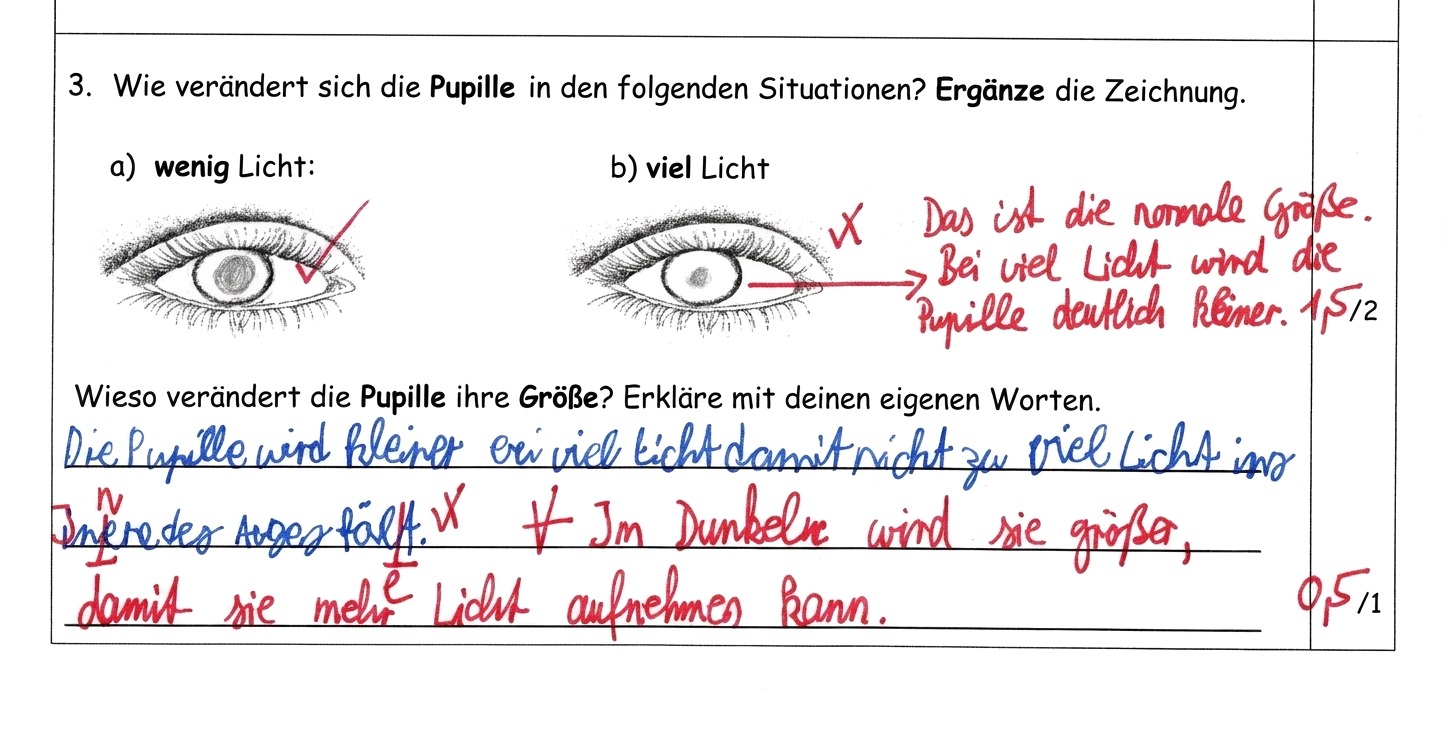 3. Wie verändert sich die Pupille in den folgenden Situationen? Ergänze die Zeichnung.
a) wenig Licht:
b) viel Licht
Das ist die normale Größe.
Bei viel Licht wird die
Pupille deutlich kleiner. 1,5/2
Wieso verändert die Pupille ihre Größe? Erkläre mit deinen eigenen Worten.
Die Pupille wird kleiner bei viel Licht damit nicht zu viel Licht ins
Innere des Auges fällt. Im Dunkeln wird sie größer,
damit sie mehr Licht aufnehmen kann. 0,5/1